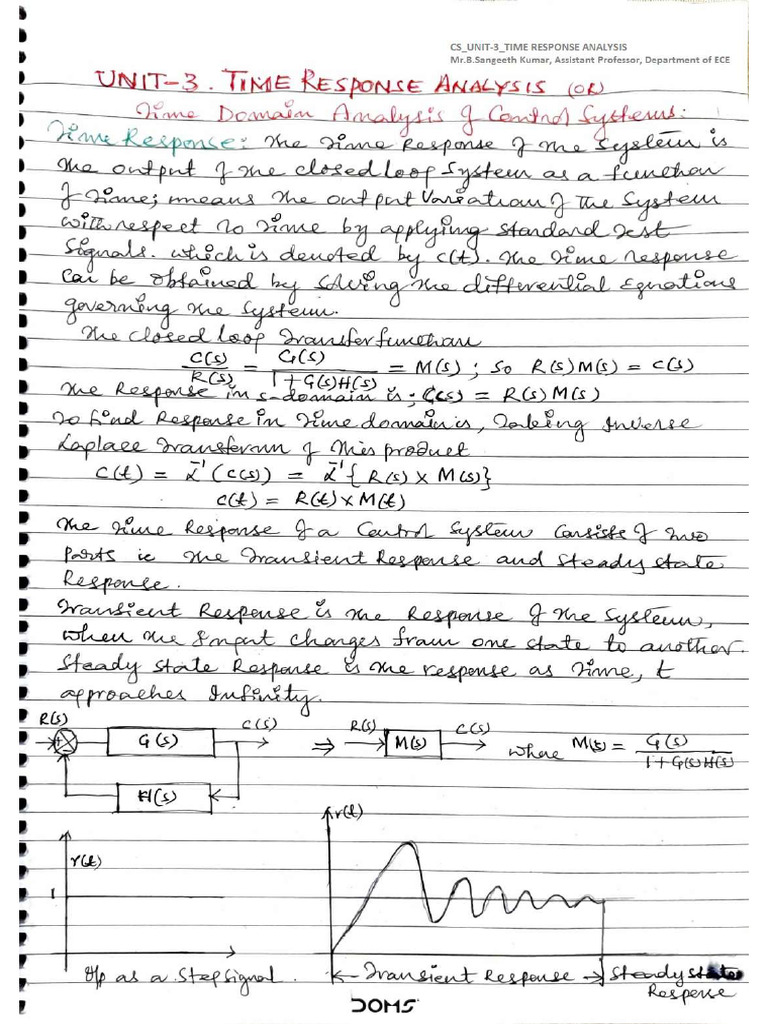 CS_UNIT-3_TIME RESPONSE ANALYSIS
Mr.B.Sangeeth Kumar, Assistant Professor, Department of ECE
UNIT-3. TIME RESPONSE ANALYSIS (OR)
Time Domain Analysis of Control Systems:
Time Response: The Time Response of the System is
the output of the closed loop System as a function
of Time; means the output Variation of the System
with respect to Time by applying Standard Test
Signals. which is denoted by c(t). The Time response
can be obtained by solving the differential Equations
governing the System.
The closed loop Transfer function
C(s)/R(s) = G(s)/1+G(s)H(s) = M(s) ; so R(s)M(s) = C(s)
The Response in s-domain is; C(s) = R(s)M(s)
To find Response in Time domain is, Taking Inverse
Laplace Transform of this product
c(t) = L⁻¹(C(s)) = L⁻¹{R(s) × M(s)}
c(t) = R(t) × M(t)
The Time Response of a Control System Consists of two
Parts ie the Transient Response and Steady state
Response.
Transient Response is the Response of the System,
when the Input changes from one state to another.
Steady State Response is the response as Time, t
approaches Infinity.
R(s) G(s) C(s) ⇒ R(s) M(s) C(s) where M(s) = G(s)/1+G(s)H(s)
H(s)
r(t)
r(t)
1
I/p as a Step Signal. Transient Response Steady state
Response
DOMS